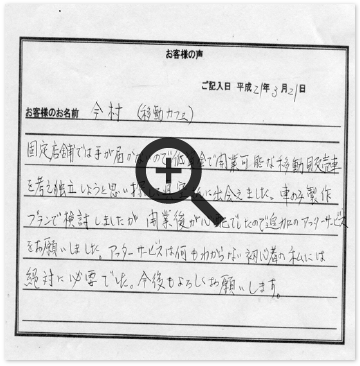 お客様の声
ご記入日 平成21年3月21日
お客様のお名前 今村 (移動カフェ)
固定店舗では手が届か で開業可能な移動販売車
を考え独立しようと思い に出会えました。車のみ製作
プランで検討しましたが 開業後が でしたので迷わずアフターサービス
をお願いしました。アフターサービスは何もわからない初心者の私には
絶対に必要でした。今後もよろしくお願いします。